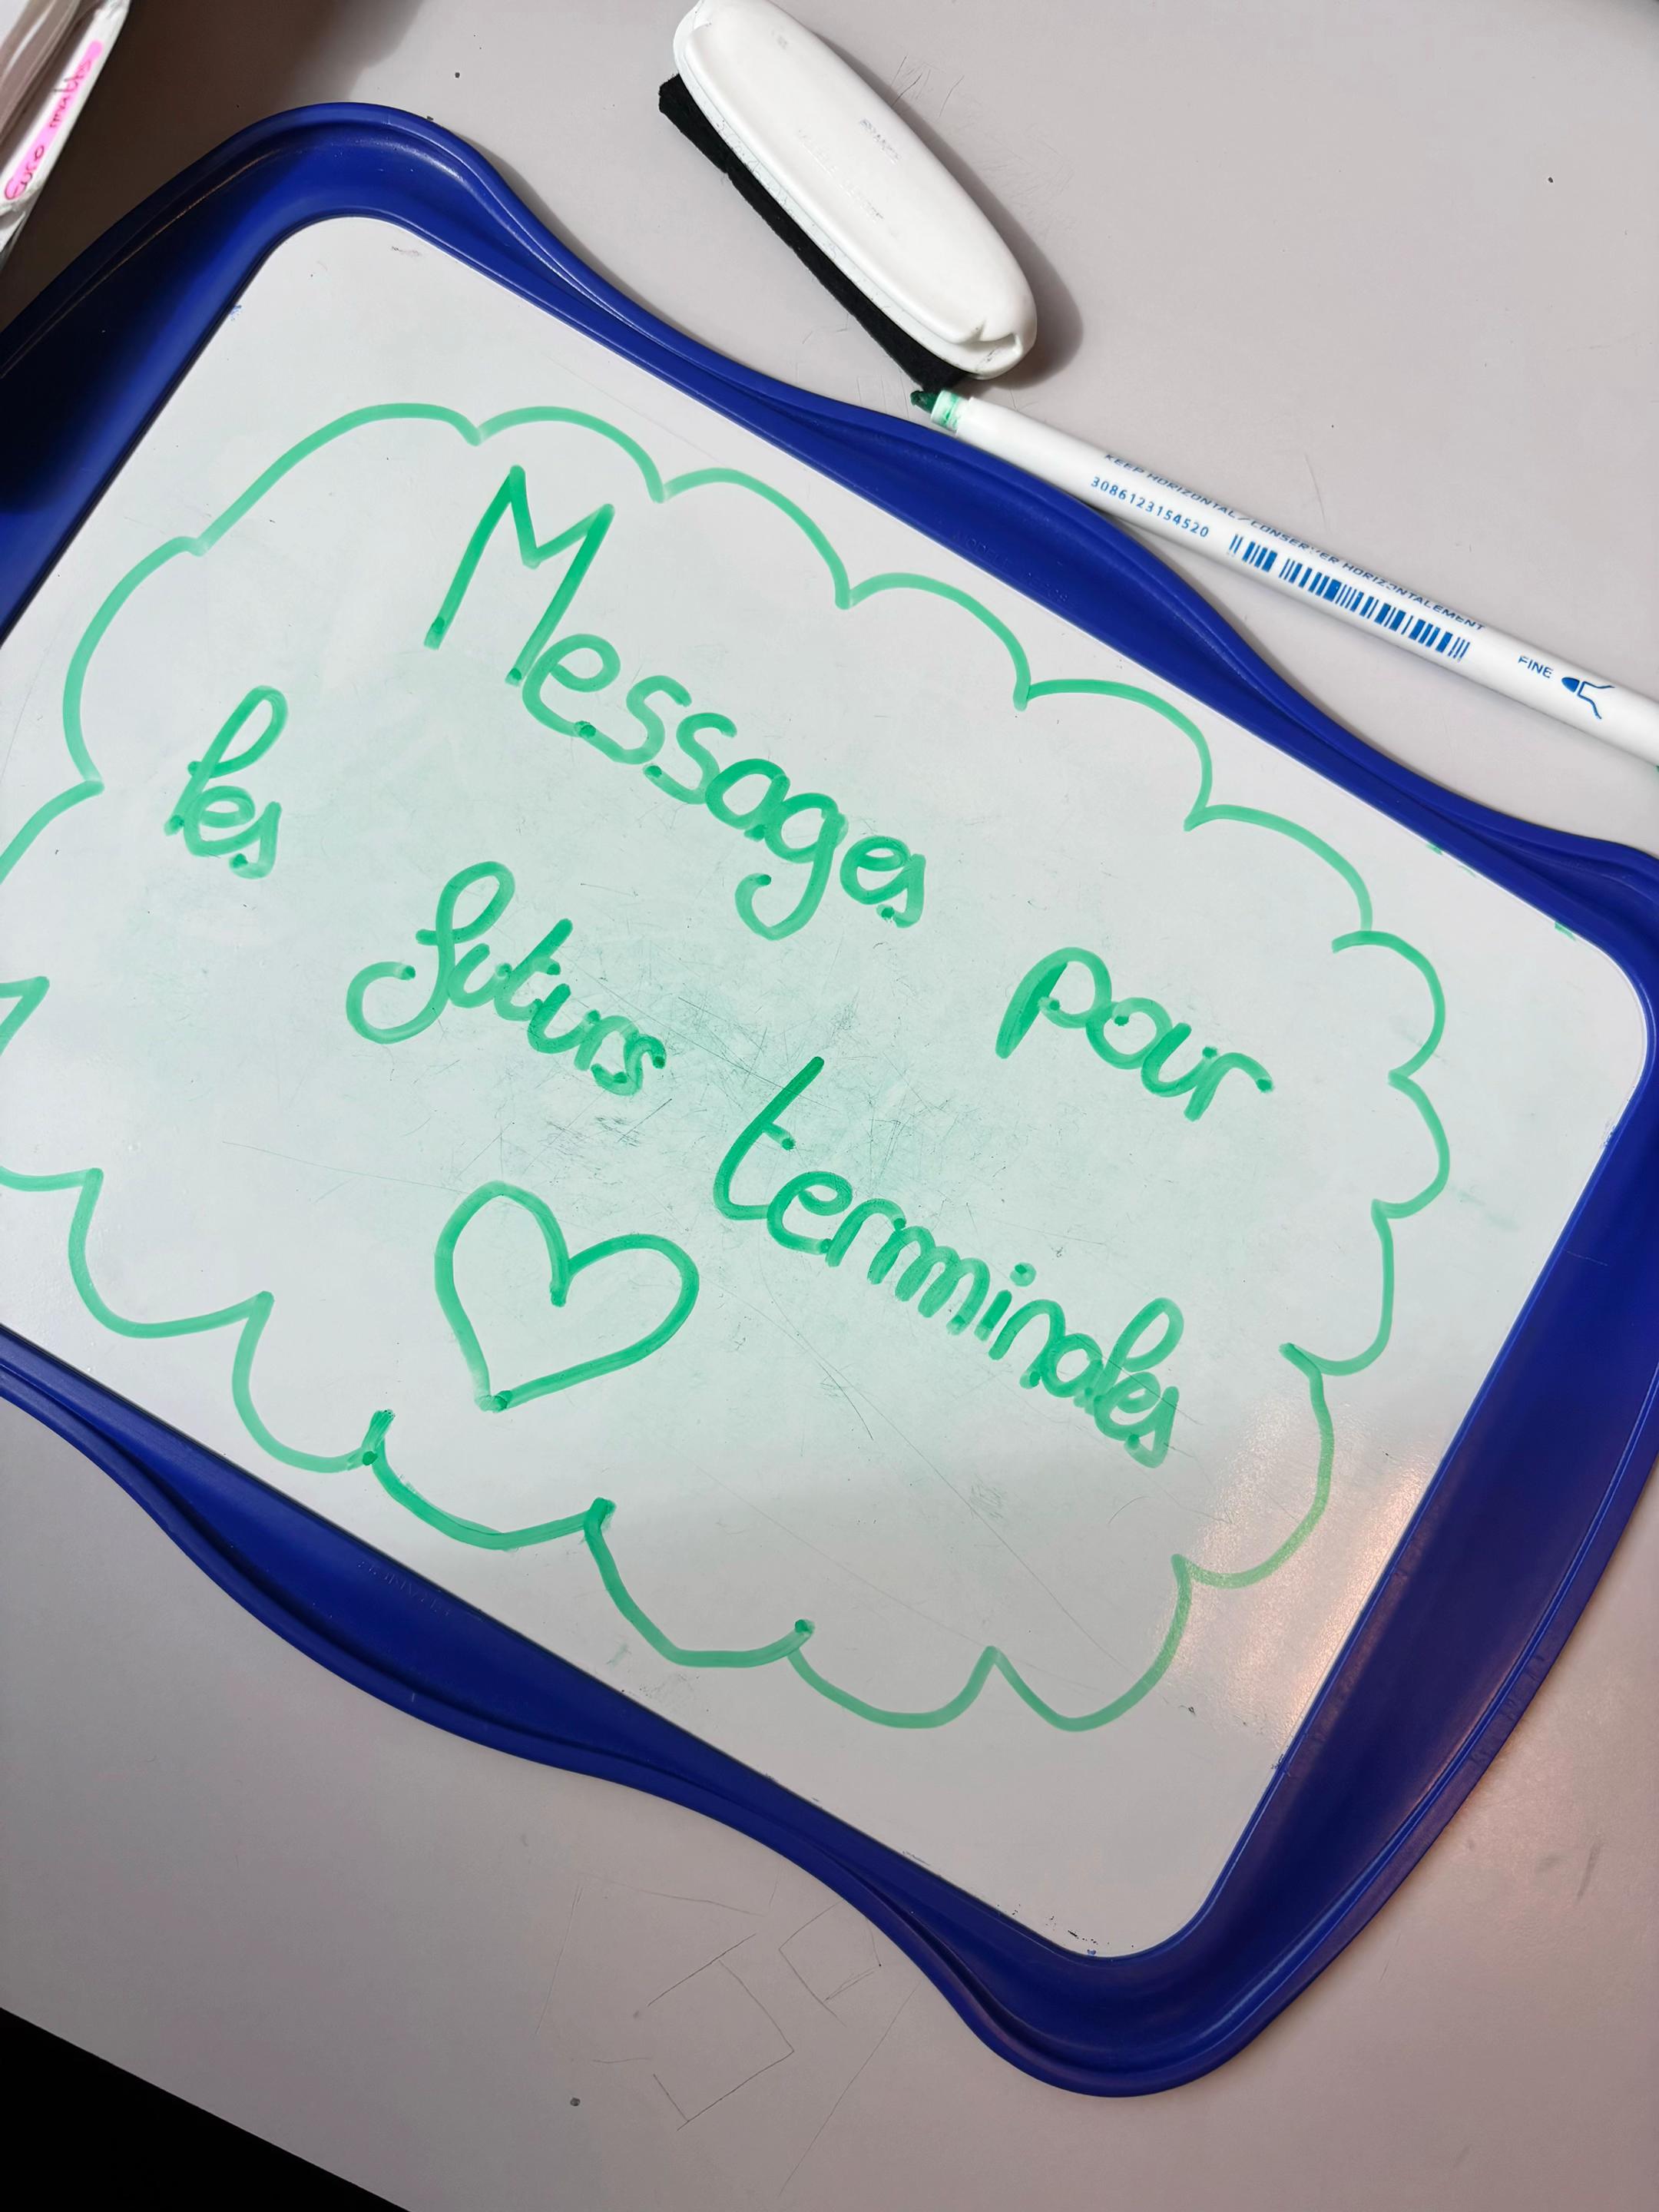 Euro maths
Messages pour
les futurs terminales
KEEP HORIZONTAL / CONSERVER HORIZONTALEMENT
3086123154520
FINE